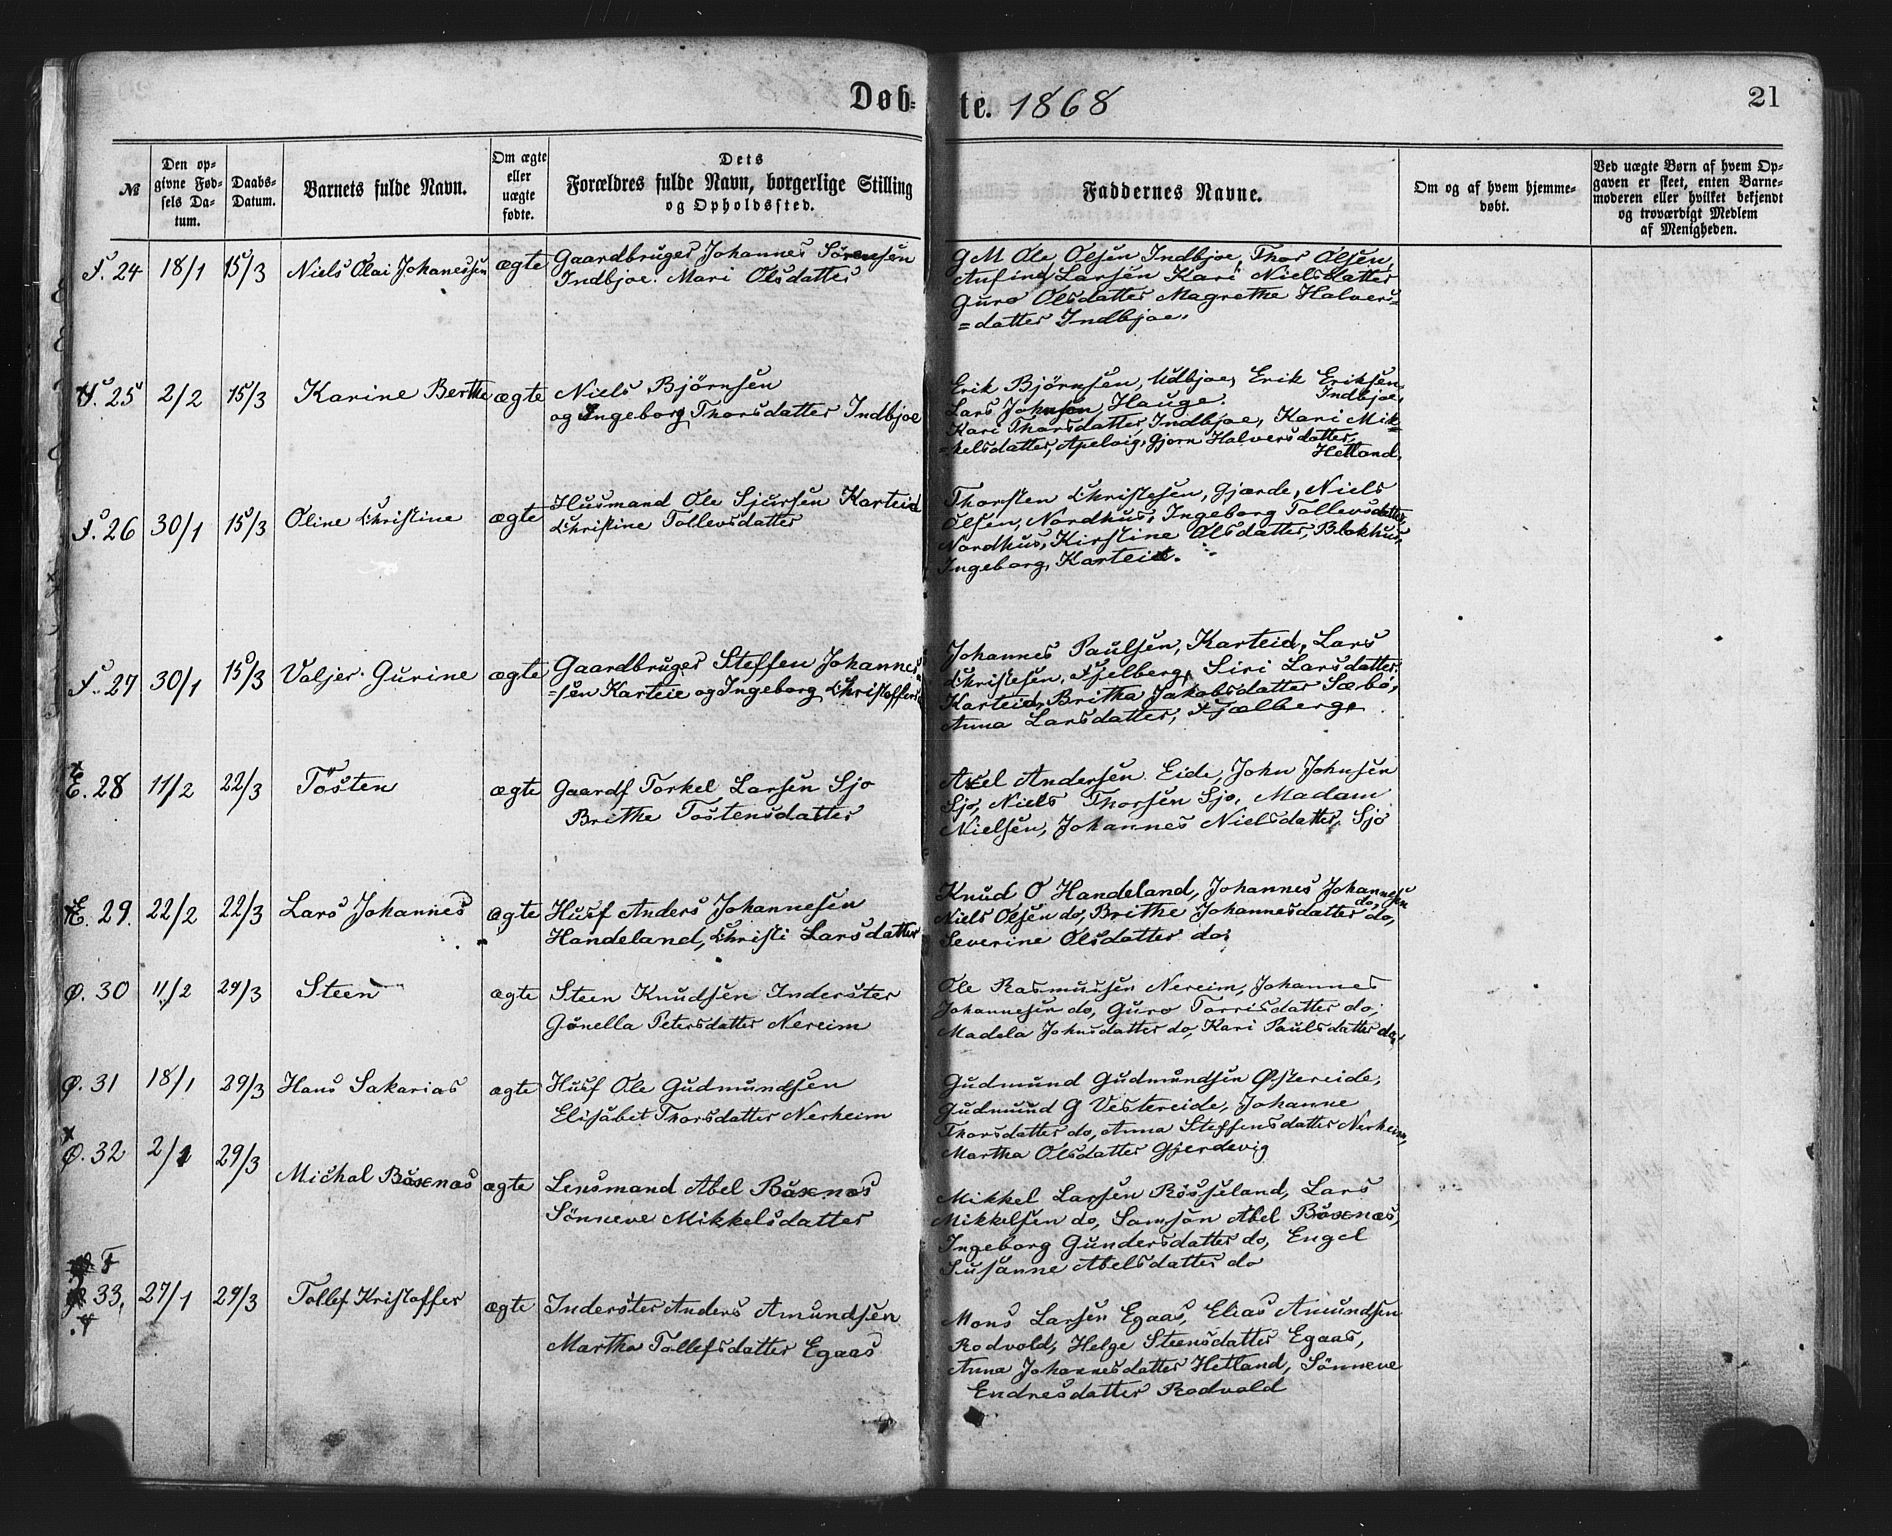 Døb-te. 1868
21
№
Den op-
givne Fød-
sels Da-
tum.
Daabs-
Datum.
Barnets fulde Navn.
Om ægte
eller
uægte
fødte.
Dets
Forældres fulde Navn, borgerlige Stilling
og Opholdssted.
Faddernes Navne.
Om og af hvem hjemme-
døbt.
Ved uægte Børn af hvem Op-
gaven er skeet, enten Barne-
moderen eller hvilket bekjendt
og troværdigt Medlem
af Menigheden.
24 18/1 15/3 Niels Olai Johanessen ægte Gaardbruger Johannes Sørensen
Indbjoe. Mari Olsdatter
G M Ole Olsen Indbjoe, Thor Olsen,
Larsen Kari Nielsdatter
Guro Olsdatter Magrethe Halvers=
=datter Indbjoe.
25 2/2 15/3 Karine Berthe ægte Niels Bjørnsen
og Ingeborg Thorsdatter Indbjoe
Erik Bjørnsen, Udbjoe, Erik Eriksen
Indbjoe,
Lars Johnsen, Hauge.
Kari Thorsdatter, Indbjoe, Kari Mik=
=kelsdatter, Apelvig, Gjorn Halversdatter,
Hetland.
26 30/1 15/3 Oline Christine ægte Husmand Ole Sjursen Karteid
Christine Tollevsdatter
Thorsten Christesen, Gjærde, Niels
Olsen, Nordhus, Ingeborg Tollevsdatter,
Nordhus, Kirstine Olsdatter, Blokhus,
Ingeborg, Karteid.
27 30/1 15/3 Valjer Gurine ægte Gaardbruger Steffen Johannes=
=sen Karteie og Ingeborg Christoffers
Johannes Paulsen, Karteid, Lars
Christesen, Fjelberg, Siri Larsdatter
Karteid, Britha Jakobsdatter Sæbø,
Anna Larsdatter, Fjælberg.
E. 28 11/2 22/3 Tösten ægte Gaardf Torkel Larsen Sjo
Brithe Tostensdatter
Axel Andersen Eide, John Johnsen
Sjo, Niels Thorsen Sjo, Madam
Nielsen, Johannes Nielsdatter, Sjo
E. 29. 22/2 22/3 Lars Johannes ægte Husf Anders Johannesen
Handeland, Christi Larsdatter
Knud O Handeland, Johannes Johannesen
do,
Niels Olsen do, Brithe Johannesdatter do,
Severine Olsdatter do.
Ø. 30 11/2 29/3 Steen ægte Steen Knudsen Inderster
Gönella Petersdatter Nereim
Ole Rasmussen Nereim, Johannes
Johannesen do, Guro Torrisdatter do,
Madela Johnsdatter do, Kari Paulsdatter do,
Ø. 31 18/1 29/3 Hans Sakarias ægte Husf Ole Gudmundsen
Elisabet Thorsdatter Nerheim
Gudmund Gudmundsen Østereide,
Gudmund G Vestereide, Johanne
Thorsdatter do, Anna Steffensdatter Nerheim,
Martha Olsdatter Gjerdevig
Ø. 32 2/1 29/3 Michal Böxnæs ægte Lensmand Abel Böxnæs
Sönneve Mikkelsdatter
Mikkel Larsen Rösseland, Lars
Mikkelsen do, Samson Abel Böxnæs,
Ingeborg Gundersdatter do, Engel
Susanne Abelsdatter do
F
33, 27/1 29/3 Tollef Kristoffer ægte Inderster Anders Amundsen
Martha Tollefsdatter Egaas
Mons Larsen Egaas, Elias Amundsen
Rodvold, Helge Steensdatter Egaas,
Anna Johannesdatter Hetland, Sönneve
Endresdatter Rodvold